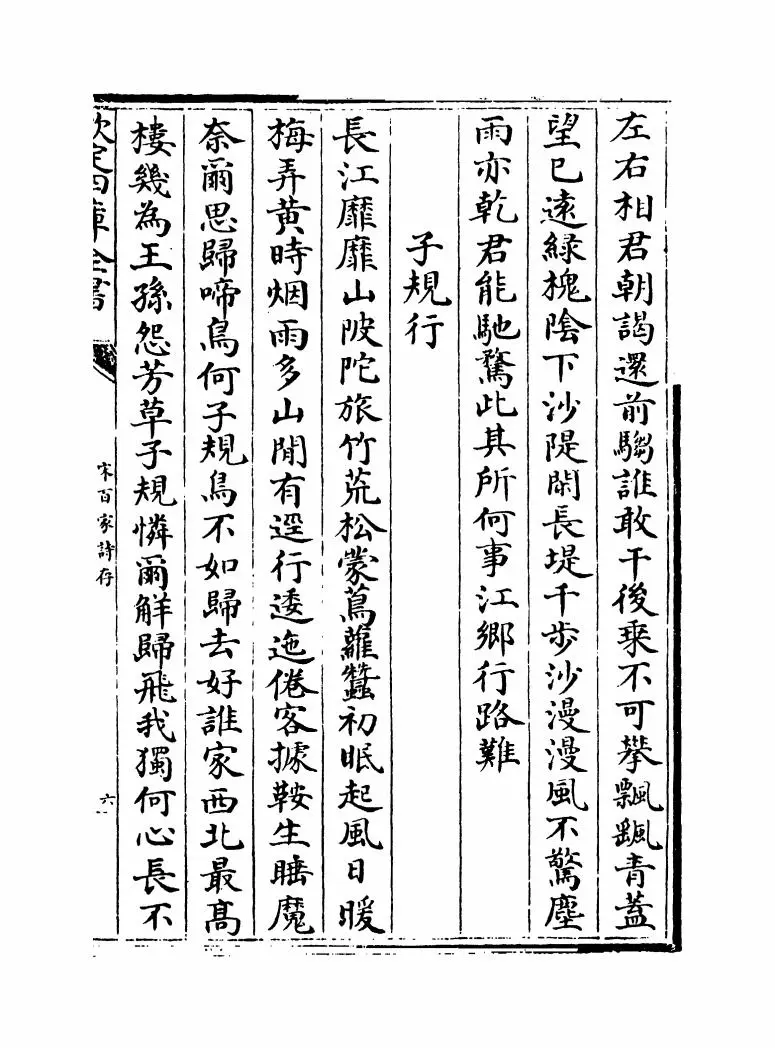 左右相君朝謁還前騶誰敢干後乗不可攀飄飄青蓋
望已遠緑槐陰下沙隄閑長堤千步沙漫漫風不驚塵
雨亦乾君能馳騖此其所何事江鄉行路難
子規行
長江靡靡山陂陀旅竹荒松蒙蔦蘿蠶初眠起風日暖
梅弄黄時烟雨多山間有逕行逶迤倦客據鞍生睡魔
奈爾思歸啼鳥何子規鳥不如歸去好誰家西北最髙
樓幾為王孫怨芳草子規憐爾觧歸飛我獨何心長不
欽定四庫全書
宋百家詩存
六